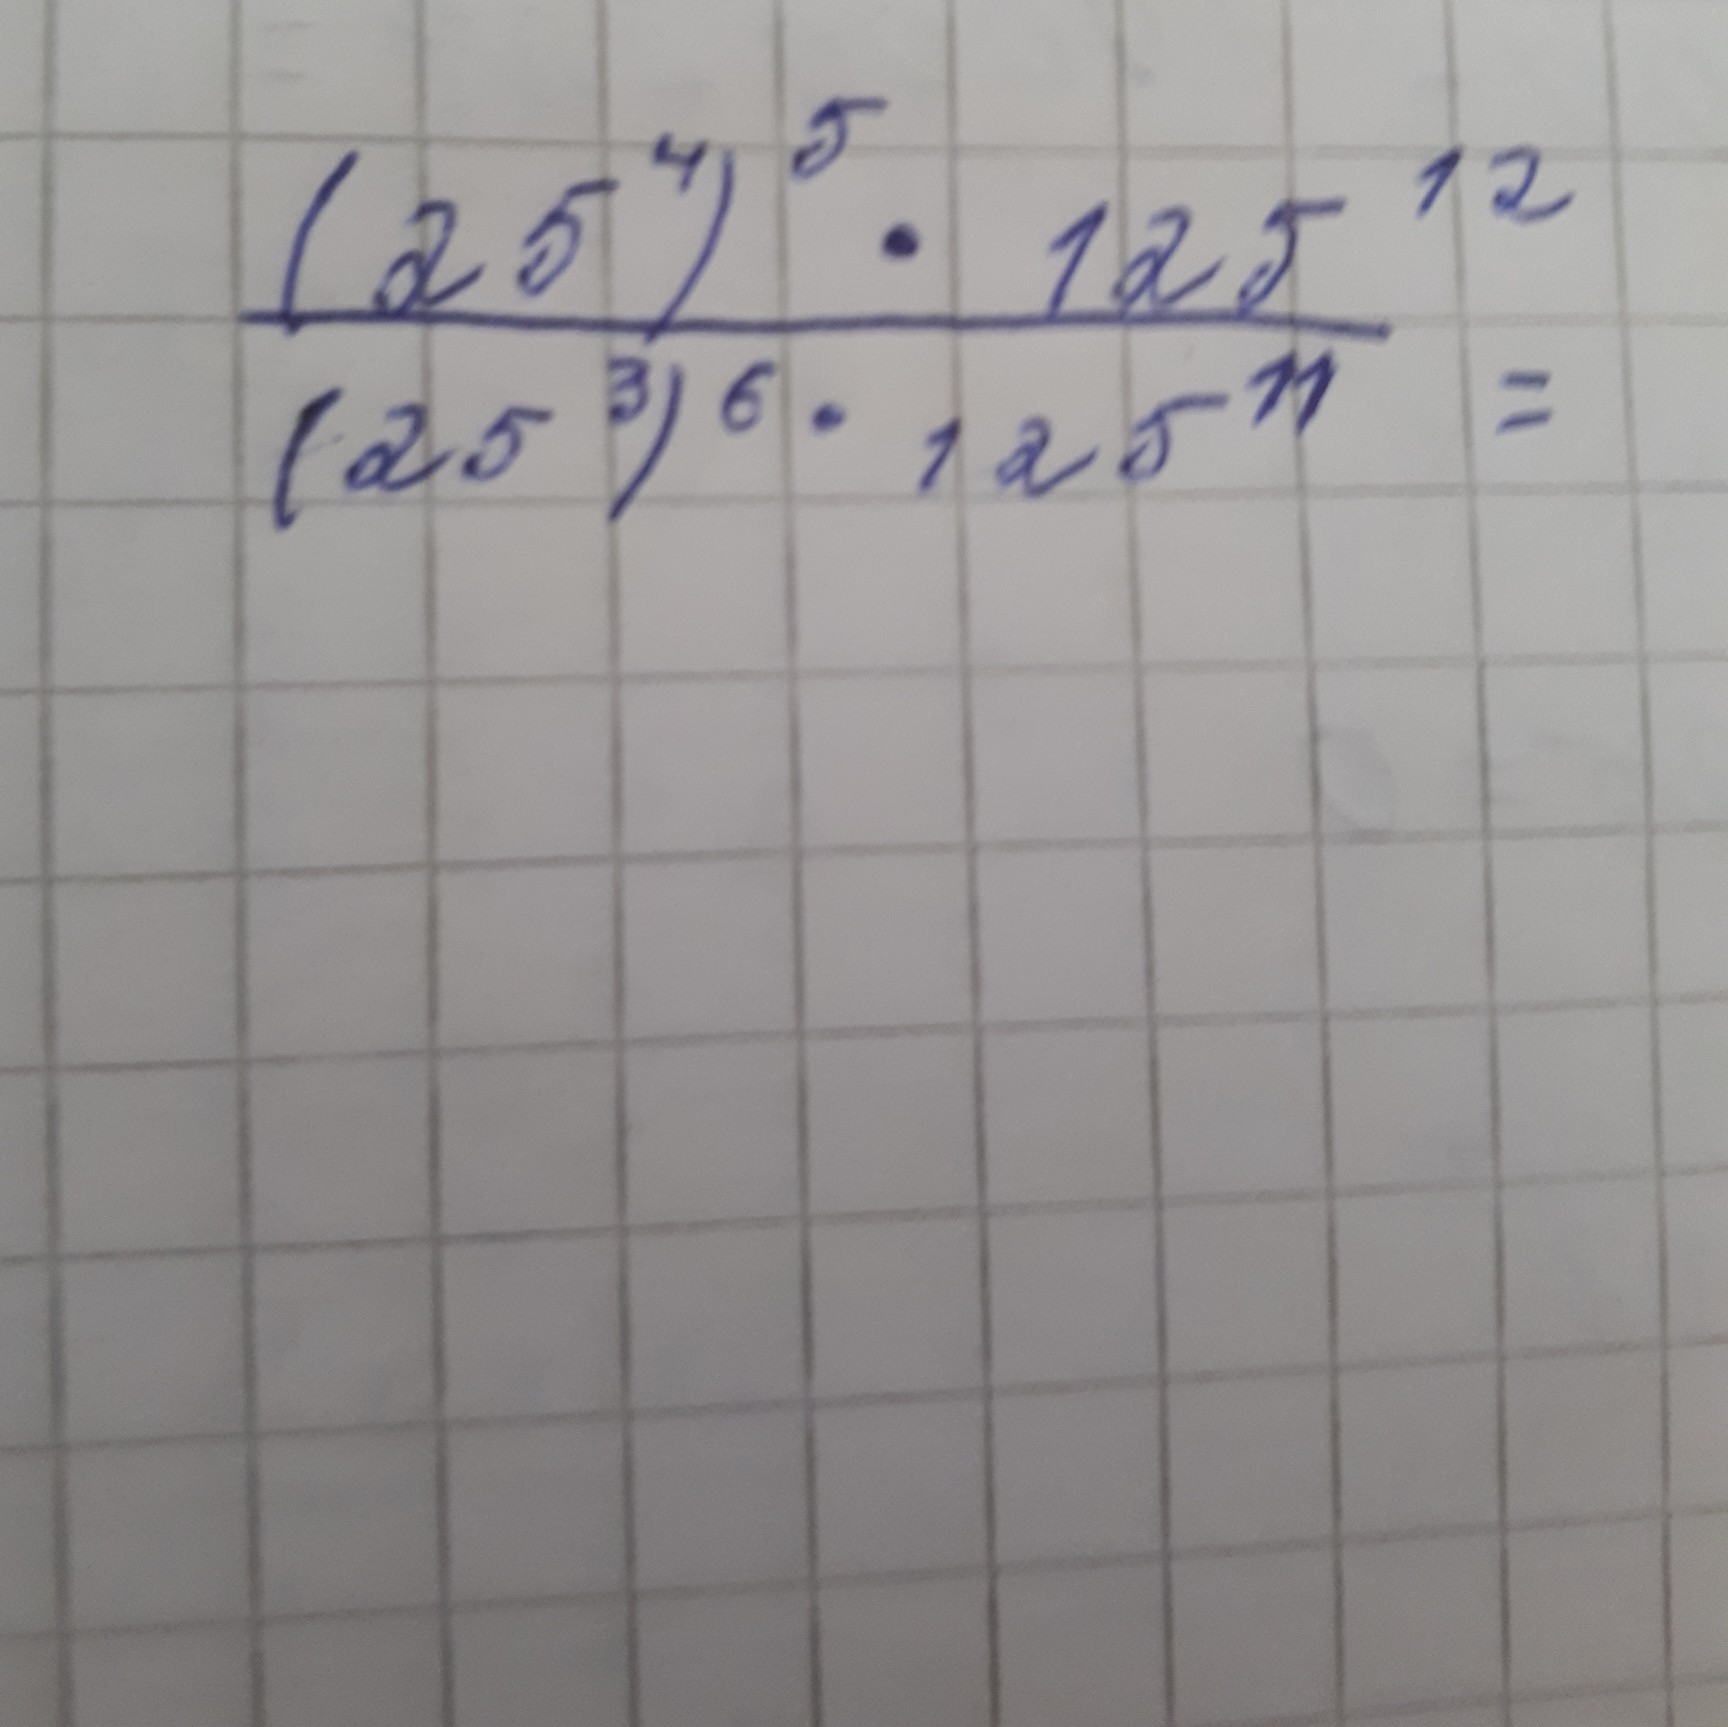 (25⁴)⁵ · 125¹²
(25³)⁶ · 125¹¹ =